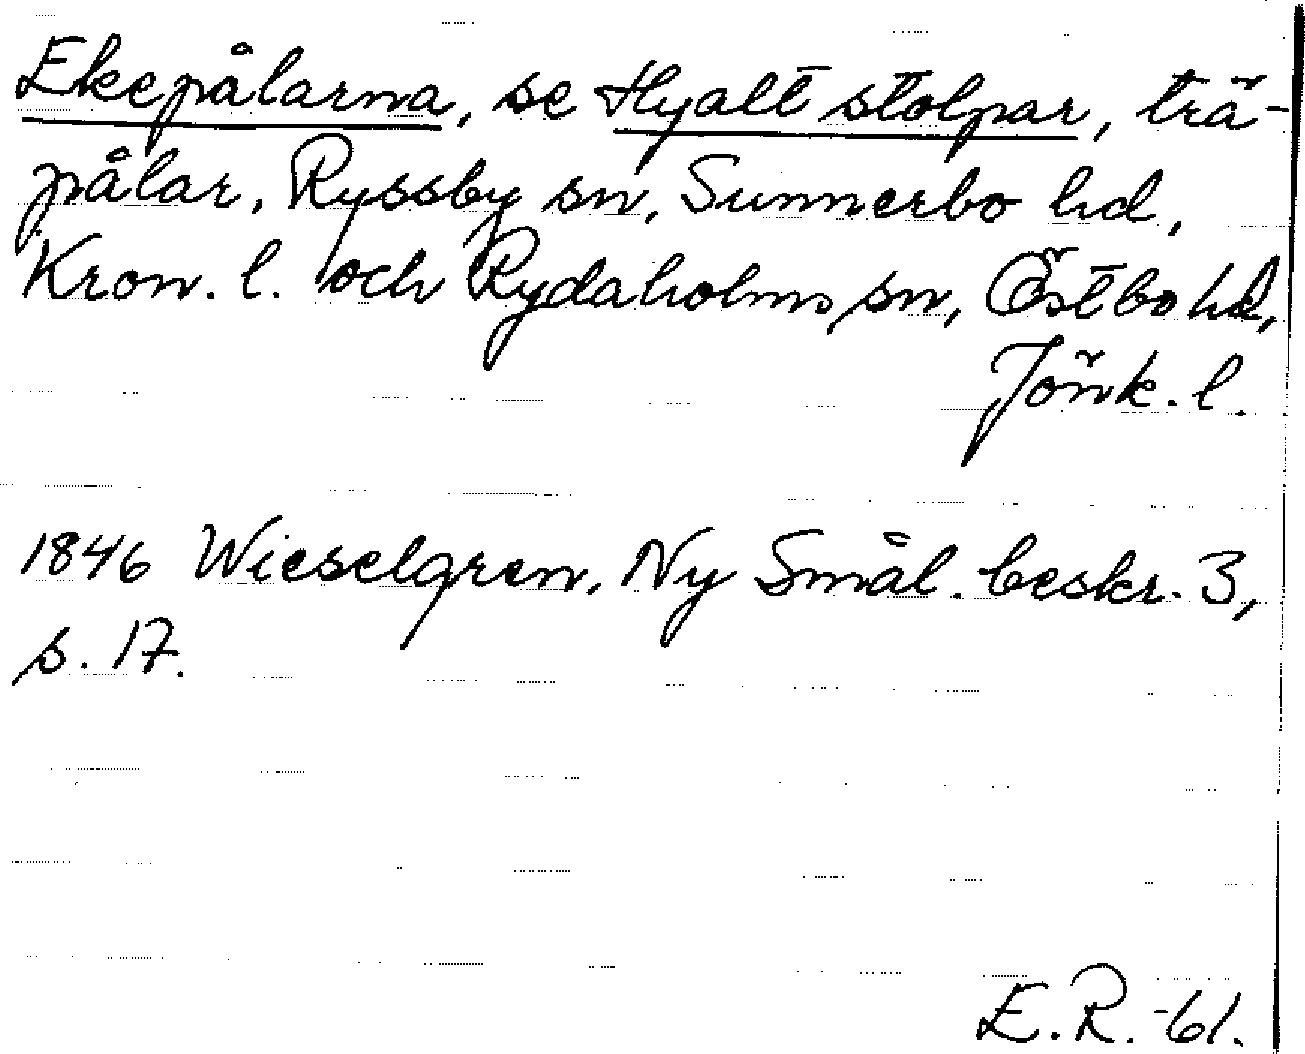 Ekepålarna, se Hyalt stolpar, trä-
pålar, Ryssby sn, Sunnerbo hd,
Kron. l. och Rydaholms sn, Östbo hd,
Jönk. l.
1846 Wieselgren, Ny Smål. beskr. 3,
s. 17.
E.R. -61.